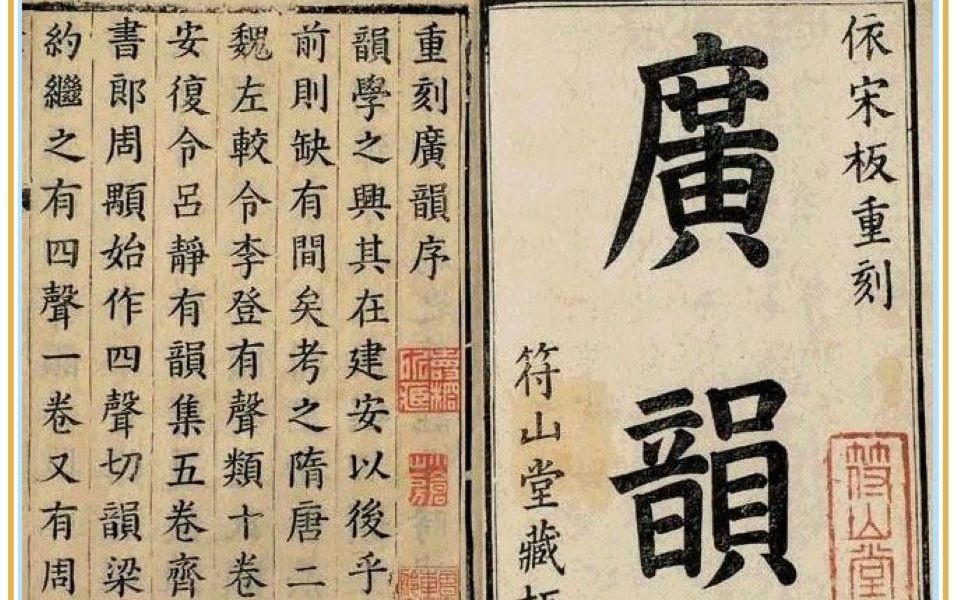 依宋板重刻
廣韻
符山堂藏板
符山堂
重刻廣韻序
韻學之興其在建安以後乎
前則缺有間矣考之隋唐二
魏左較令李登有聲類十卷
安復令呂靜有韻集五卷齊
書郎周顒始作四聲切韻梁
約繼之有四聲一卷又有周